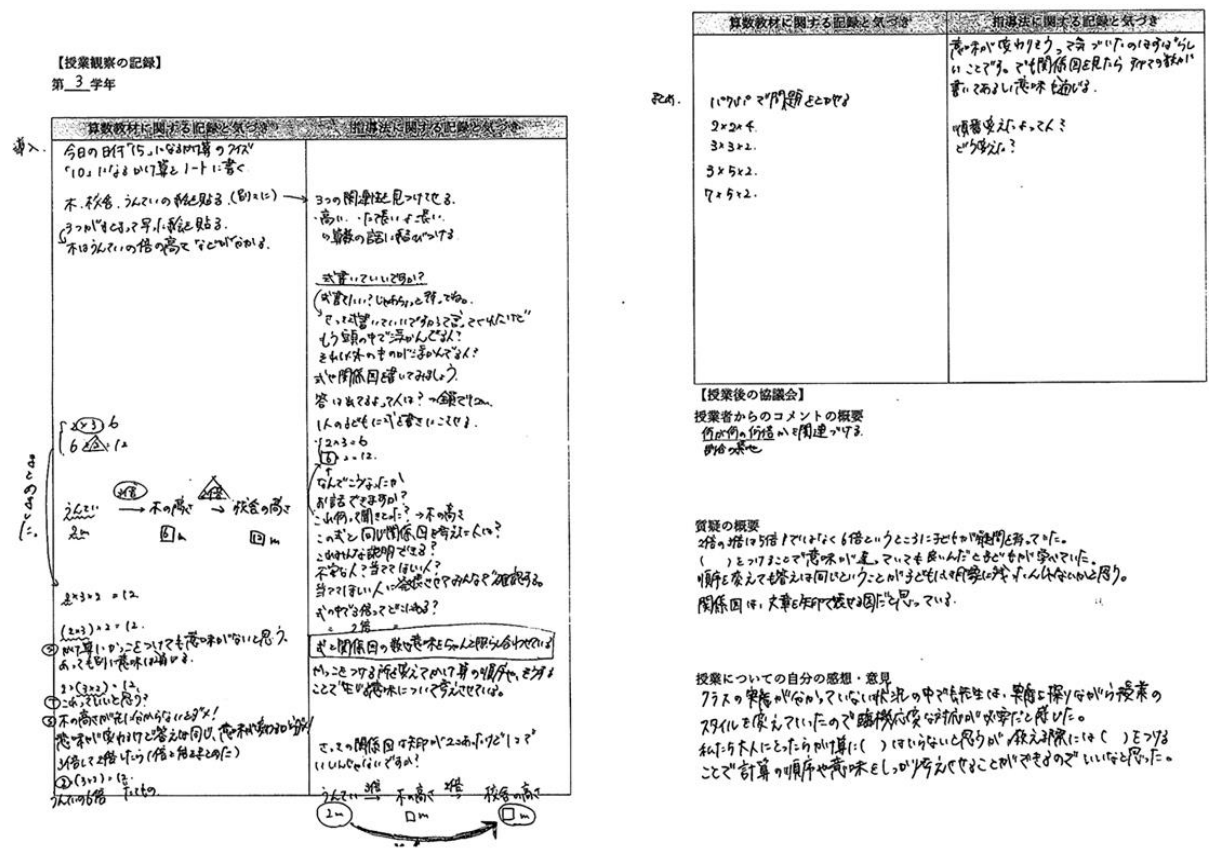 【授業観察の記録】
第 3 学年
算数教材に関する記録と気づき
指導法に関する記録と気づき
導入.
今日の日付「15」になるかけ算のクイズ
「10」になるかけ算をノートに書く
木、校舎、うんていの絵を貼る.(別々に)
3つがまとまって写った絵を貼る.
木はうんていの倍の高さ などが分かる.
3つの関連性を見つけさせる.
・高い、
→算数の話に結びつける
式書いていいですか?
もう頭の中で浮かんでる人?
それ以外のものが浮かんでる人?
式や関係図を書いてみましょう.
答は出てるよって人は?
1人の子どもに式を書きにこさせる.
2×3=6
6×2=12.
なんでこうなったか
お話できますか?
これ何って聞きたい? →木の高さ
この式と同じ関係図を考えた人は?
これみんな説明できる?
不安な人? 当ててほしい人?
当ててほしい人に発表させてみんなで確認する.
式の中で3倍ってどこにある?
〃 2倍 〃
式と関係図の数や意味をちゃんと照らし合わせている
かっこをつける所を変えてかけ算の順序や、そうする
ことで生じる意味について考えさせている.
さっきの関係図は矢印が2つあったけど1つで
いいんじゃないですか?
うんてい 3倍→ 木の高さ 2倍→ 校舎の高さ
2m □m □m
2×3=6
6×2=12
うんてい 3倍→ 木の高さ 2倍→ 校舎の高さ
2m 6m 12m
2×3×2=12
(2×3)×2=12.
かけ算にかっこをつけても意味がないと思う、
あっても別に意味は通じる.
2×(3×2)=12.
これっていいと思う?
木の高さが先に分からないとダメ!
意味が変わるけど答えは同じ、
3倍して2倍したら6倍
2×(3×2)=12.
うんていの6倍
算数教材に関する記録と気づき
指導法に関する記録と気づき
意味が変わりそうって気づいたのはすばらし
いことです。でも関係図を見たら
書いてあるし意味も通じる.
まとめ.
パクパクで問題をとかせる
2×2×4.
3×3×2.
3×5×2.
7×5×2.
順番変えたよって人?
どう変えた?
【授業後の協議会】
授業者からのコメントの概要
何が何の何倍かを関連づける.
質疑の概要
2倍の3倍は5倍!ではなく6倍というところに子どもが疑問を持っていた.
( )をつけることで意味が違っていても良いんだと子どもが学べていた.
順序を変えても答えは同じということが子どもには印象に残ったんじゃないかと思う。
関係図は、文章を矢印で表せる図だと思っている.
授業についての自分の感想・意見
クラスの実態が分かっていない状況の中で先生は、実態を探りながら授業の
スタイルを変えていったので臨機応変な対応が必要だと感じた。
私たち大人にとったらかけ算に( )はいらないと思うが、教える際には( )をつける
ことで計算の順序や意味をしっかり考えさせることができるのでいいなと思った。